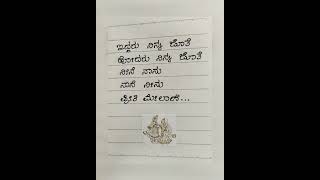 ಇದ್ದರು ನಿನ್ನ ಜೊತೆ
ಹೋದರು ನಿನ್ನ ಜೊತೆ
ನೀನೆ ನಾನು
ನಾನೆ ನೀನು
ಪ್ರೀತಿ ಮೇಲಾಣೆ...